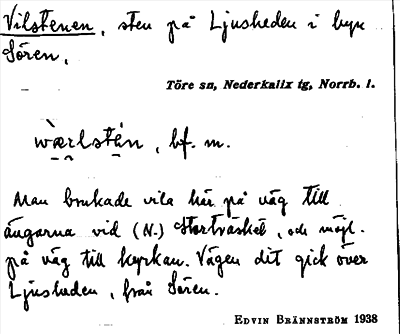 Vilstenen, sten på Ljusheden i byn
Sören.
Töre sn, Nederkalix tg, Norrb. l.
wærlstén, bf. m.
Man brukade vila här på väg till
ängarna vid (N.) Storträsket, och möjl.
på väg till kyrkan. Vägen dit gick över
Ljusheden, från Sören.
EDVIN BRÄNNSTRÖM 1938